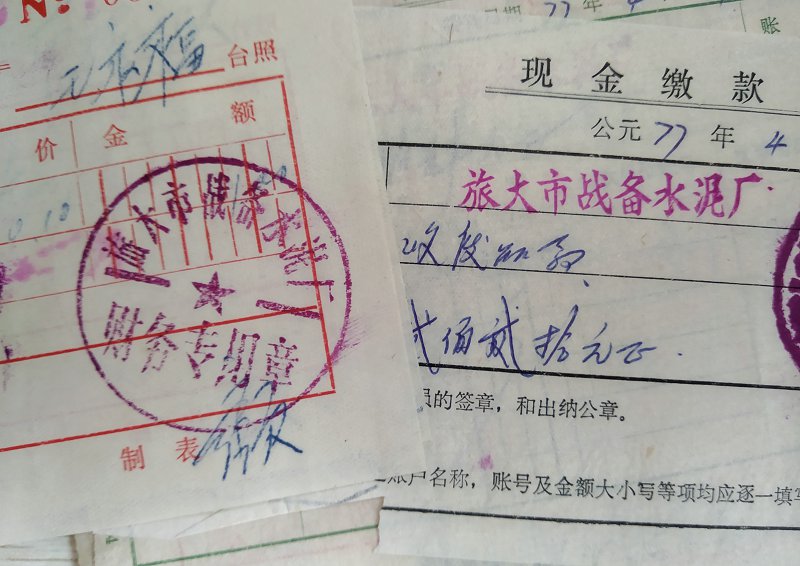 台照
价 金 额
0.10
旅大市战备水泥厂
财务专用章
制表
现金缴款
公元 77 年 4
旅大市战备水泥厂
收废品款
贰佰贰拾元正
员的签章，和出纳公章。
账户名称，账号及金额大小写等项均应逐一填写
77 年 4
账